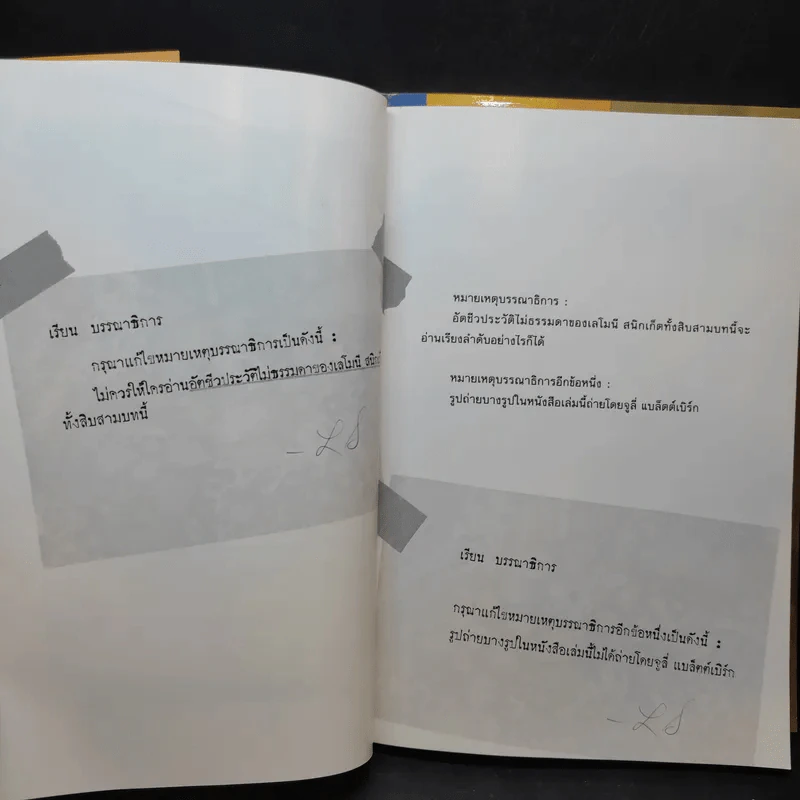 เรียน บรรณาธิการ
กรุณาแก้ไขหมายเหตุบรรณาธิการเป็นดังนี้ :
ไม่ควรให้ใครอ่านอัตชีวประวัติไม่ธรรมดาของเลโมนี
ทั้งสิบสามบทนี้
– L S
หมายเหตุบรรณาธิการ :
อัตชีวประวัติไม่ธรรมดาของเลโมนี สนิกเก็ตทั้งสิบสามบทนี้จะ
อ่านเรียงลำดับอย่างไรก็ได้
หมายเหตุบรรณาธิการอีกข้อหนึ่ง :
รูปถ่ายบางรูปในหนังสือเล่มนี้ถ่ายโดยจูลี่ แบล็ตต์เบิร์ก
เรียน บรรณาธิการ
กรุณาแก้ไขหมายเหตุบรรณาธิการอีกข้อหนึ่งเป็นดังนี้ :
รูปถ่ายบางรูปในหนังสือเล่มนี้ไม่ได้ถ่ายโดยจูลี่ แบล็ตต์เบิร์ก
– L S